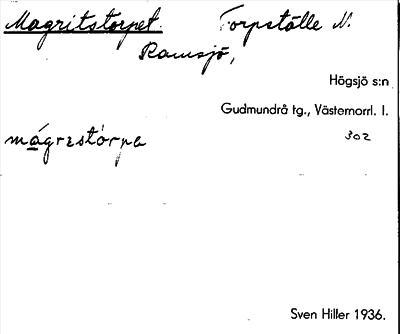 Magritstorpet. Torpställe N.
Ramsjö,
Högsjö s:n
Gudmundrå tg., Västernorrl. l.
302
mágrɪstòrpa
Sven Hiller 1936.